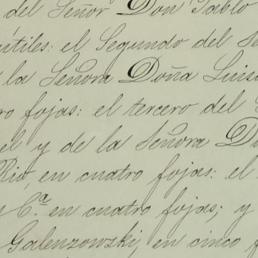 del Señor Don Pablo
útiles: el Segundo del Se
la Señora Doña Luisa
ro fojas: el tercero del
el y de la Señora D
Rio, en cuatro fojas: el
y Cª. en cuatro fojas; y
Galenzowski, en cinco f